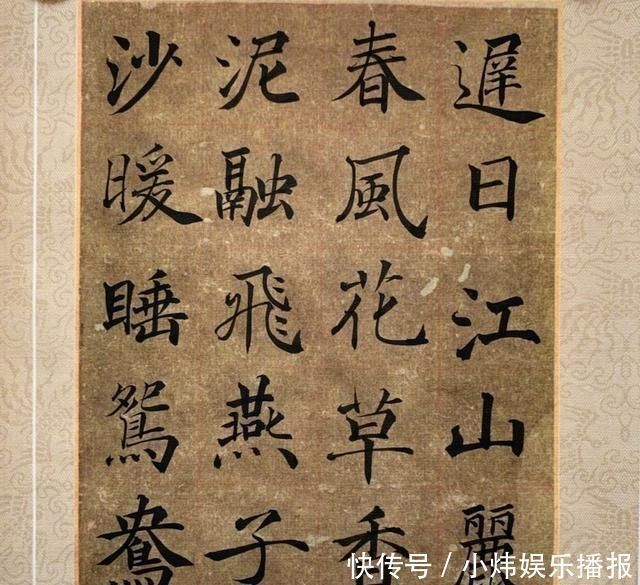 遲日江山麗
春風花草香
泥融飛燕子
沙暖睡鴛鴦
快传号 / 小炜娱乐播报